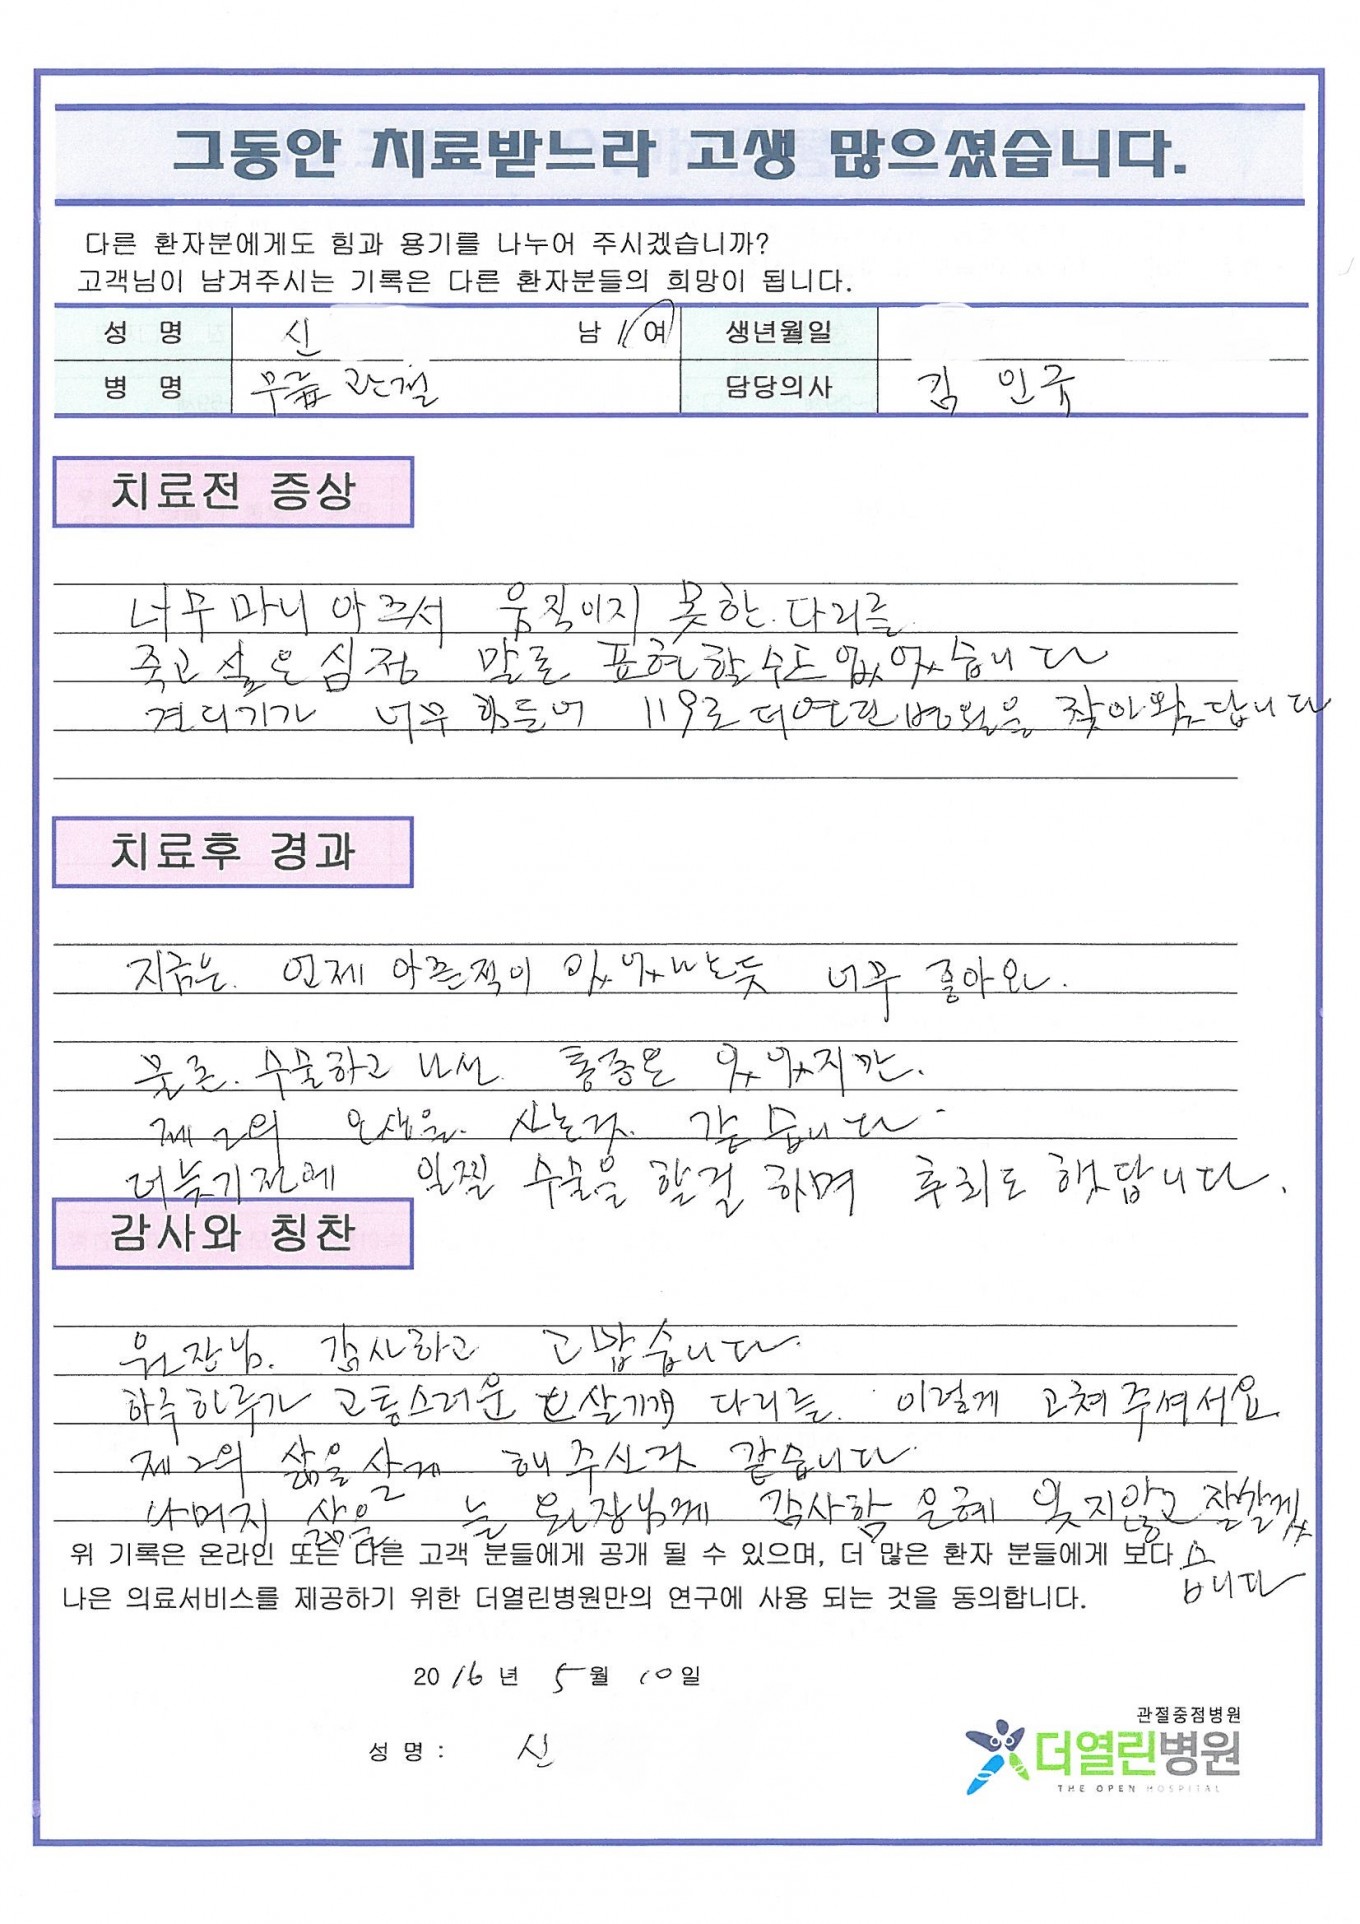 그동안 치료받느라 고생 많으셨습니다.
다른 환자분에게도 힘과 용기를 나누어 주시겠습니까?
고객님이 남겨주시는 기록은 다른 환자분들의 희망이 됩니다.
성 명 신 남 / 여 생년월일
병 명 무릎 관절 담당의사 김 인규
치료전 증상
너무 마니 아프서 움직이지 못한 다리를
죽고 싶은 심정 말로 표현할수도 없었습니다
견디기가 너무 힘들어 119로 더열린병원을 찾아왔답니다
치료후 경과
지금은. 언제 아픈적이 있었냐는듯 너무 좋아요.
물론. 수술하고 나선 통증은 있었지만.
제2의 인생을. 사는것. 같습니다.
더늦기전에 일찍 수술을 할걸 하며 후회도 했답니다.
감사와 칭찬
원장님. 감사하고 고맙습니다.
하루하루가 고통스러운 다리를. 이렇게 고쳐주셔서요
제2의 삶을살게 해주신것 같습니다.
나머지 삶을 늘 원장님께 감사함 은혜 잊지않고 잘살겠
습니다
위 기록은 온라인 또는 다른 고객 분들에게 공개 될 수 있으며, 더 많은 환자 분들에게 보다
나은 의료서비스를 제공하기 위한 더열린병원만의 연구에 사용 되는 것을 동의합니다.
2016년 5월 10일
성 명 : 신
관절중점병원
더열린병원
THE OPEN HOSPITAL